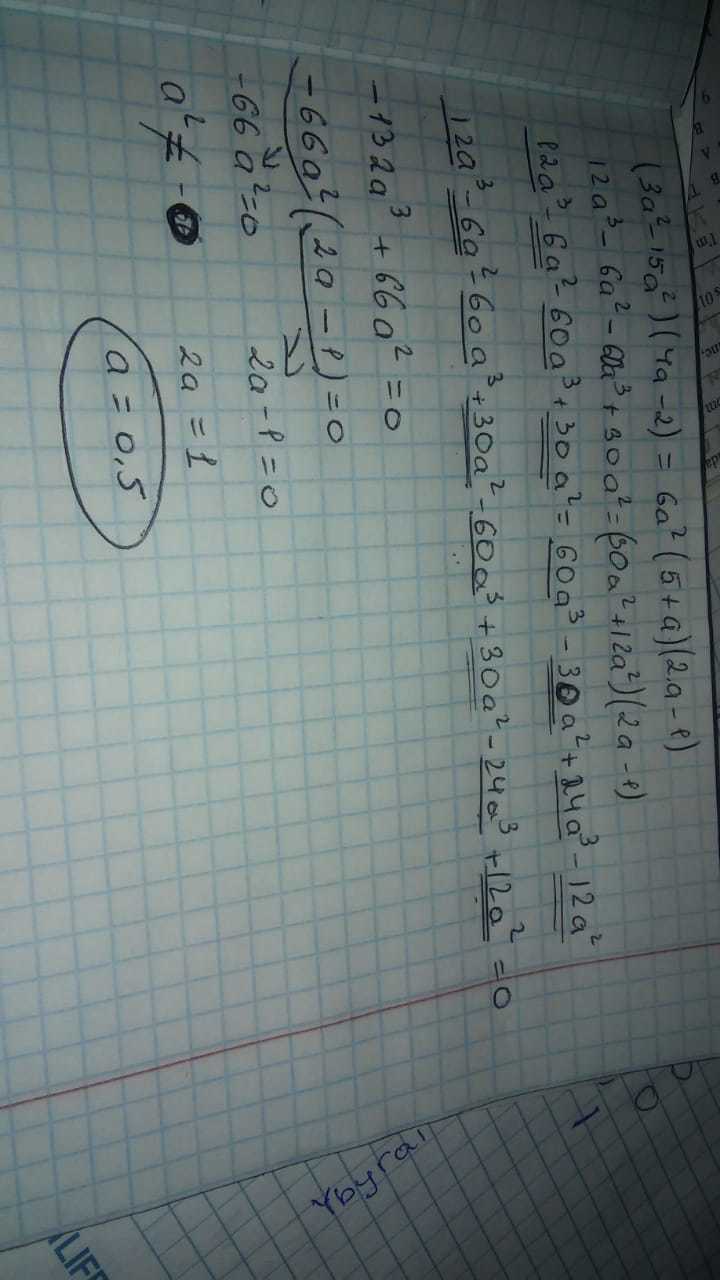 (3a²-15a²)(4a-2) = 6a²(5+a)(2a-1)
12a³-6a²-60a³+30a²=(30a²+12a²)(2a-1)
12a³-6a²-60a³+30a²= 60a³-30a²+24a³-12a²
12a³-6a²-60a³+30a²-60a³+30a²-24a³+12a²=0
-132a³+66a²=0
-66a²(2a-1)=0
-66a²=0 2a-1=0
a²≠-0 2a=1
a=0,5
LIFE